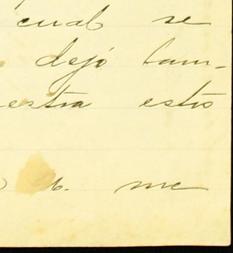 cual se
dejó tam-
estra esto
b. me